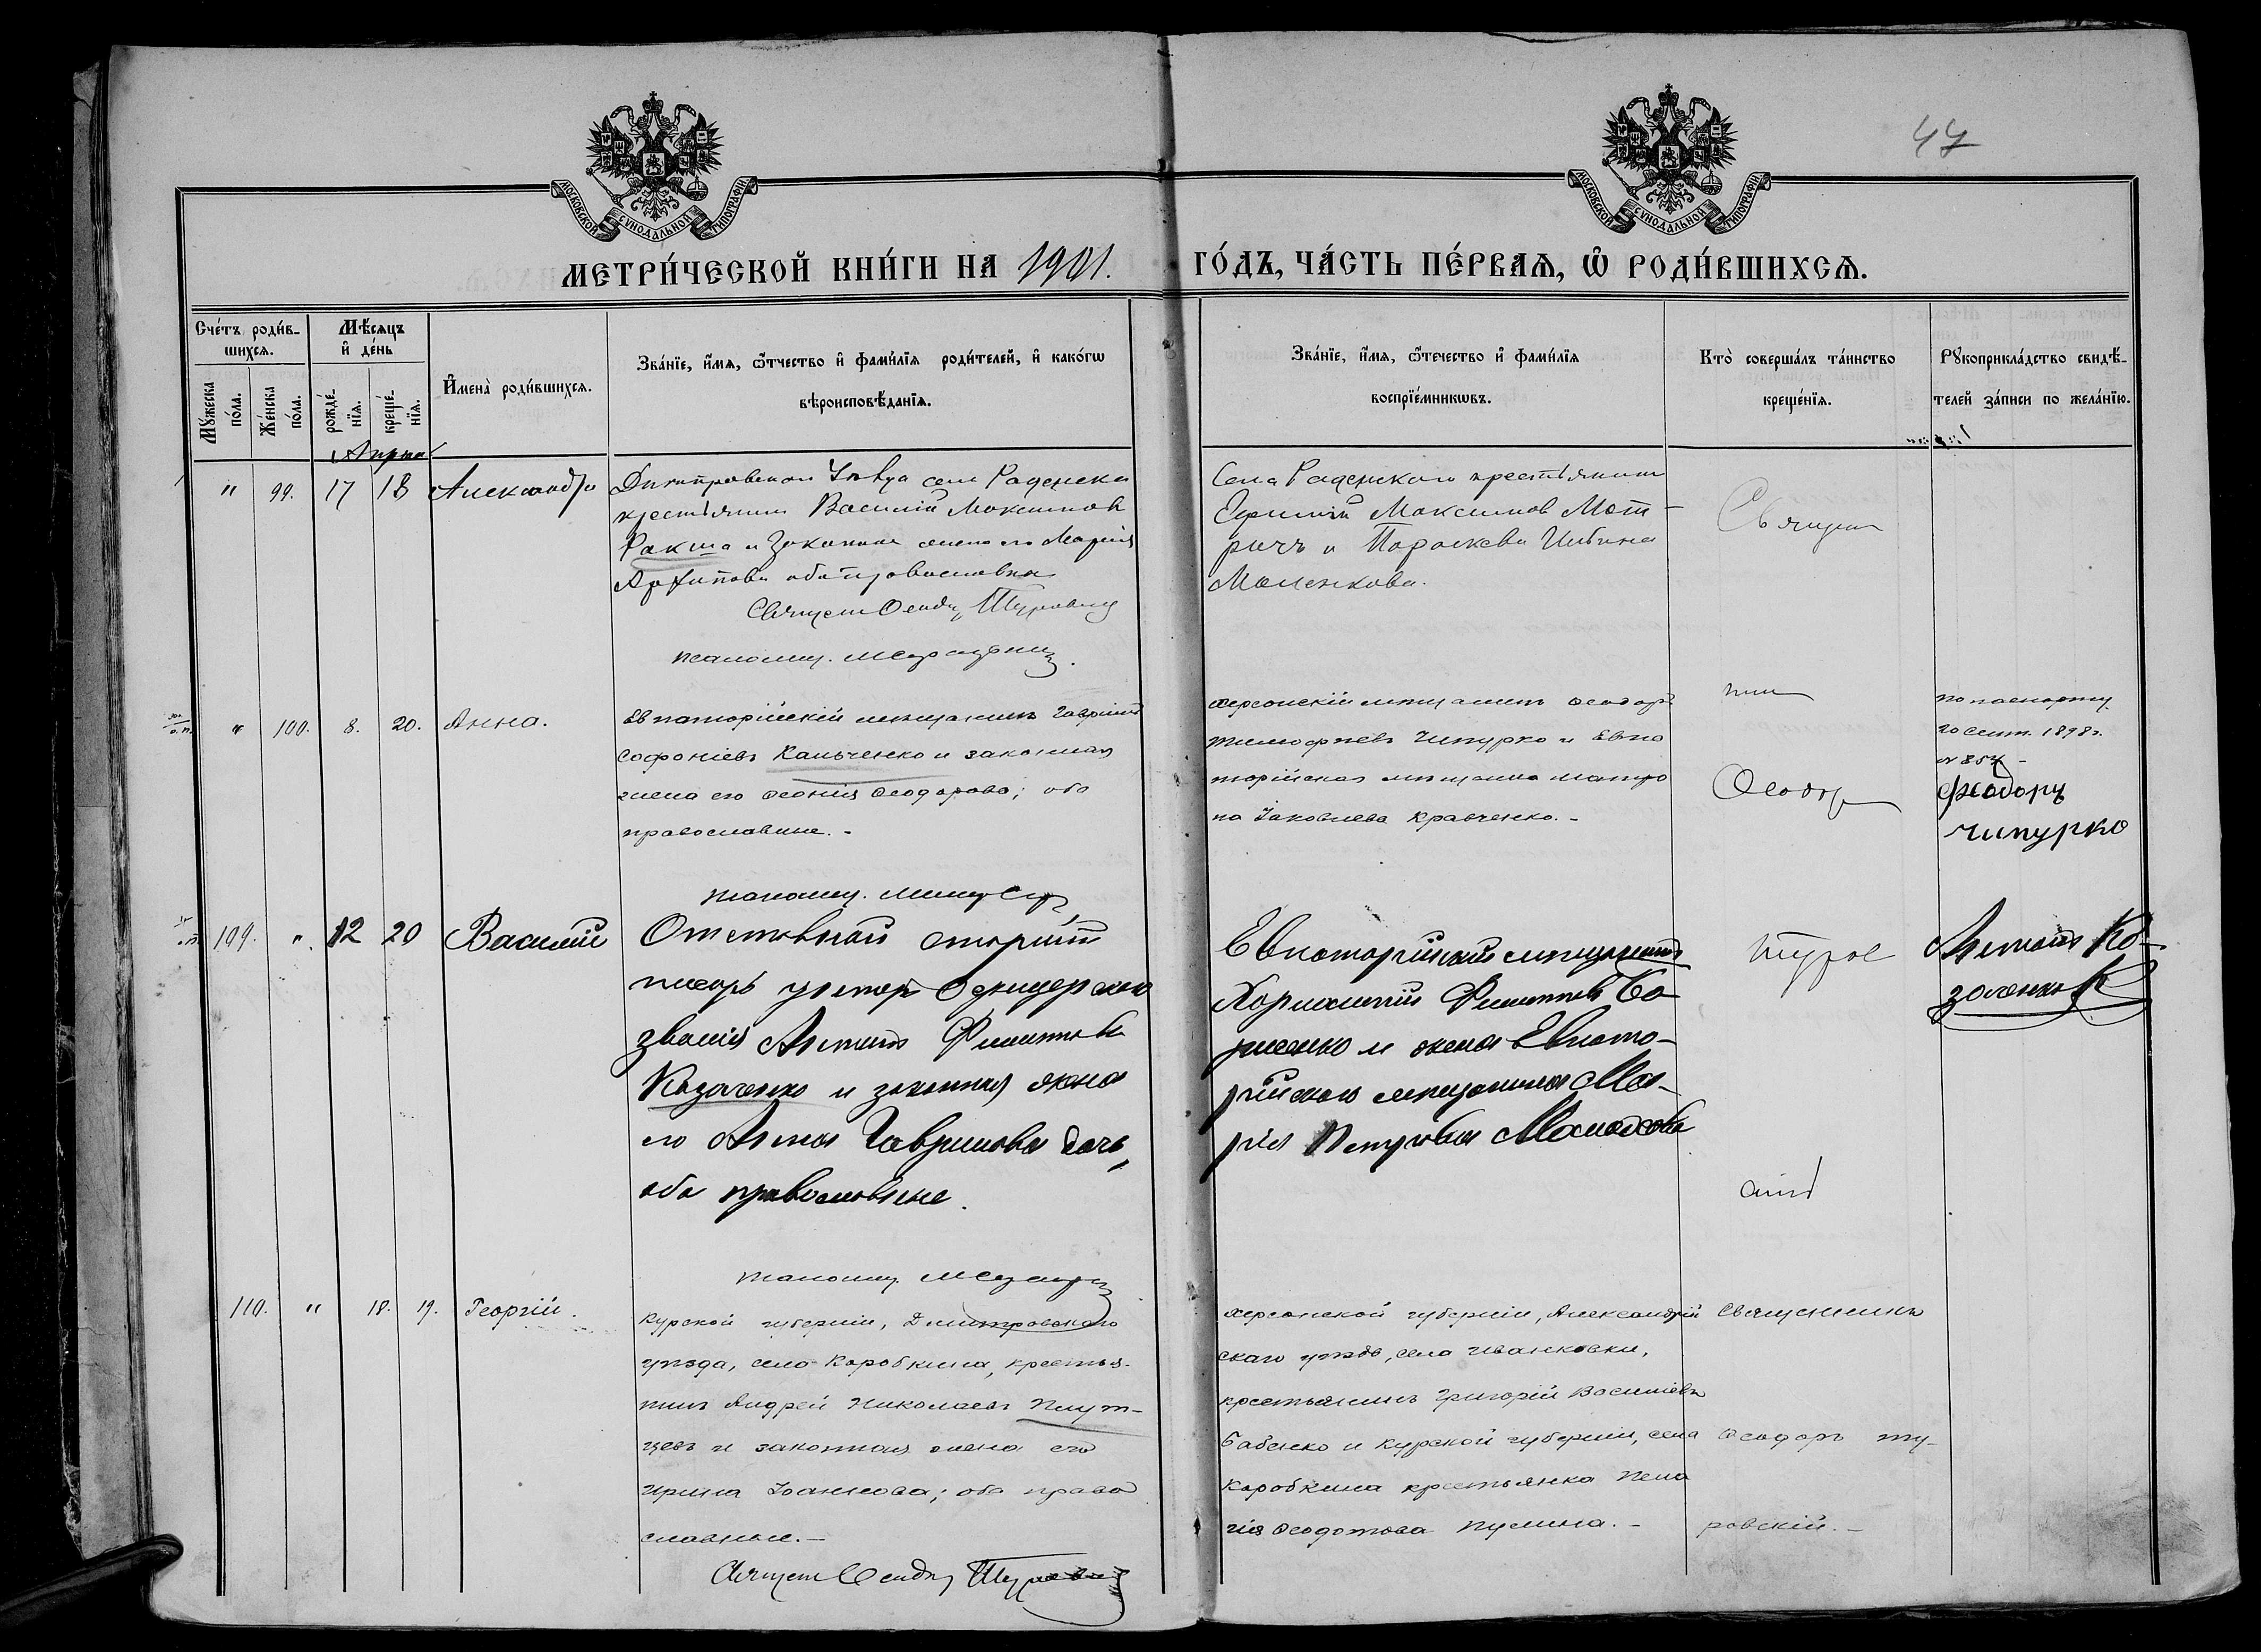 47
МОСКОВСКОЙ СУНОДАЛЬНОЙ ТИПОГРАФІИ
МОСКОВСКОЙ СУНОДАЛЬНОЙ ТИПОГРАФІИ
МЕТРИ́ЧЕСКОЙ КНИ́ГИ НА 1901. ГО́ДЪ, ЧА́СТЬ ПЕ́РВАѦ, Ѡ РОДИ́ВШИХСѦ.
Сче́тъ роди́в-
шихсѧ.
Мꙋ́жеска по́ла.
Же́нска по́ла.
Мѣ́сѧцъ
и҆ де́нь
рожде́-нїѧ.
креще́-нїѧ.
И҆мена̀ роди́вшихсѧ.
Зва́нїе, и҆́мѧ, ѻ҆́тчество и҆ фами́лїѧ роди́телей, и҆ како́гѡ
вѣроисповѣ́данїѧ.
Зва́нїе, и҆́мѧ, ѻ҆те́чество и҆ фами́лїѧ
воспрїе́мникѡвъ.
Кто̀ соверша́лъ та́инство
креще́нїѧ.
Рꙋкоприкла́дство свидѣ́-
телей за́писи по жела́нїю.
" 99. 17 18 Александра
Днепровскаго села Раденска
крестьянин Василій Максимов
Ракша и законная жена его Марія
Архипова оба православные
Священ Феодор Туровскій
псаломщ.
Села Раденскаго крестьянин
Ефимій Максимов Мат-
ричъ и Параскева
Священ
" 100. 8. 20. Анна.
Евпаторійскій мѣщанинъ Гавріилъ
Софоніевъ Кальченко и законная
жена его Ѳеодорова; оба
православные. -
псаломщ.
херсонскій мѣщанинъ Ѳеодоръ
Тимофеевъ Чипурко и Евпа
торійская мѣщанка Матро
на Іаковлева Кравченко. -
ник
Ѳеодор
по паспорту
20 сент. 1898 г.
Феодоръ
Чипурко
109. ". 12 20 Василій
Отставной старшій
писарь унтеръ Офицерскаго
званія Антонъ Филиппов
Казаченко и законная жена
его Анна Гаврилова дочь,
оба православные.
псаломщ.
Евпаторійскій мѣщанинъ
Харлампій Филиппов Бо-
рисенко и жена Евпато-
рійскаго мѣщанина Ма-
рія Петровна
Туров
скій
Антонъ Ка-
заченко
110. " 18. 19. Георгій.
Курской губерніи, Дмитровскаго
уѣзда, села Коробкина, крестья-
нинъ Андрей Николаевъ Плут-
цевъ и законная жена его
Ирина Іоаннова; оба право
славные. -
Священ Феодор Туровскій
херсонской губерніи, Александрій
скаго уѣзда, села Иванковки,
крестьянинъ Григорій Василіевъ
Бабенко и Курской губерніи, села
Коробкина крестьянка Пела
гія Ѳеодотова Пулина. -
Священникъ
Ѳеодоръ Ту-
ровскій. -